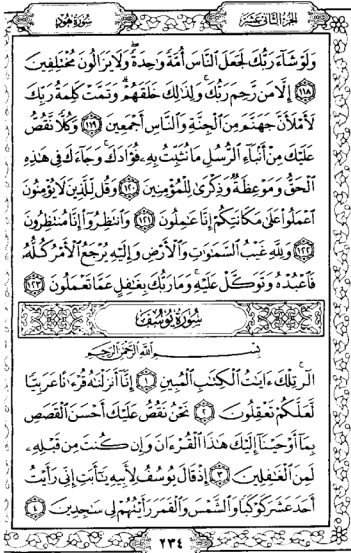 الجزء الثاني عشر
سورة هود
وَلَوْ شَآءَ رَبُّكَ لَجَعَلَ ٱلنَّاسَ أُمَّةً وَٰحِدَةً ۖ وَلَا يَزَالُونَ مُخْتَلِفِينَ
١١٨ إِلَّا مَن رَّحِمَ رَبُّكَ ۚ وَلِذَٰلِكَ خَلَقَهُمْ ۗ وَتَمَّتْ كَلِمَةُ رَبِّكَ
لَأَمْلَأَنَّ جَهَنَّمَ مِنَ ٱلْجِنَّةِ وَٱلنَّاسِ أَجْمَعِينَ ١١٩ وَكُلًّا نَّقُصُّ
عَلَيْكَ مِنْ أَنۢبَآءِ ٱلرُّسُلِ مَا نُثَبِّتُ بِهِۦ فُؤَادَكَ ۚ وَجَآءَكَ فِى هَٰذِهِ
ٱلْحَقُّ وَمَوْعِظَةٌ وَذِكْرَىٰ لِلْمُؤْمِنِينَ ١٢٠ وَقُل لِّلَّذِينَ لَا يُؤْمِنُونَ
ٱعْمَلُوا۟ عَلَىٰ مَكَانَتِكُمْ إِنَّا عَٰمِلُونَ ١٢١ وَٱنتَظِرُوٓا۟ إِنَّا مُنتَظِرُونَ
١٢٢ وَلِلَّهِ غَيْبُ ٱلسَّمَٰوَٰتِ وَٱلْأَرْضِ وَإِلَيْهِ يُرْجَعُ ٱلْأَمْرُ كُلُّهُۥ
فَٱعْبُدْهُ وَتَوَكَّلْ عَلَيْهِ ۚ وَمَا رَبُّكَ بِغَٰفِلٍ عَمَّا تَعْمَلُونَ ١٢٣
سورة يوسف
بِسْمِ ٱللَّهِ ٱلرَّحْمَٰنِ ٱلرَّحِيمِ
الٓر ۚ تِلْكَ ءَايَٰتُ ٱلْكِتَٰبِ ٱلْمُبِينِ ١ إِنَّآ أَنزَلْنَٰهُ قُرْءَٰنًا عَرَبِيًّا
لَّعَلَّكُمْ تَعْقِلُونَ ٢ نَحْنُ نَقُصُّ عَلَيْكَ أَحْسَنَ ٱلْقَصَصِ
بِمَآ أَوْحَيْنَآ إِلَيْكَ هَٰذَا ٱلْقُرْءَانَ وَإِن كُنتَ مِن قَبْلِهِۦ
لَمِنَ ٱلْغَٰفِلِينَ ٣ إِذْ قَالَ يُوسُفُ لِأَبِيهِ يَٰٓأَبَتِ إِنِّى رَأَيْتُ
أَحَدَ عَشَرَ كَوْكَبًا وَٱلشَّمْسَ وَٱلْقَمَرَ رَأَيْتُهُمْ لِى سَٰجِدِينَ ٤
٢٣٤